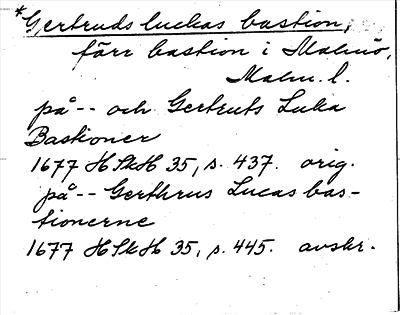 *Gertruds luckas bastion,
förr bastion i Malmö,
Malm. l.
på -- och Gertruts Luka
Bastioner
1677 HSkH 35, s. 437. orig.
på -- Gerthrus Lucas bas-
tionerne
1677 HSkH 35, s. 445. avskr.